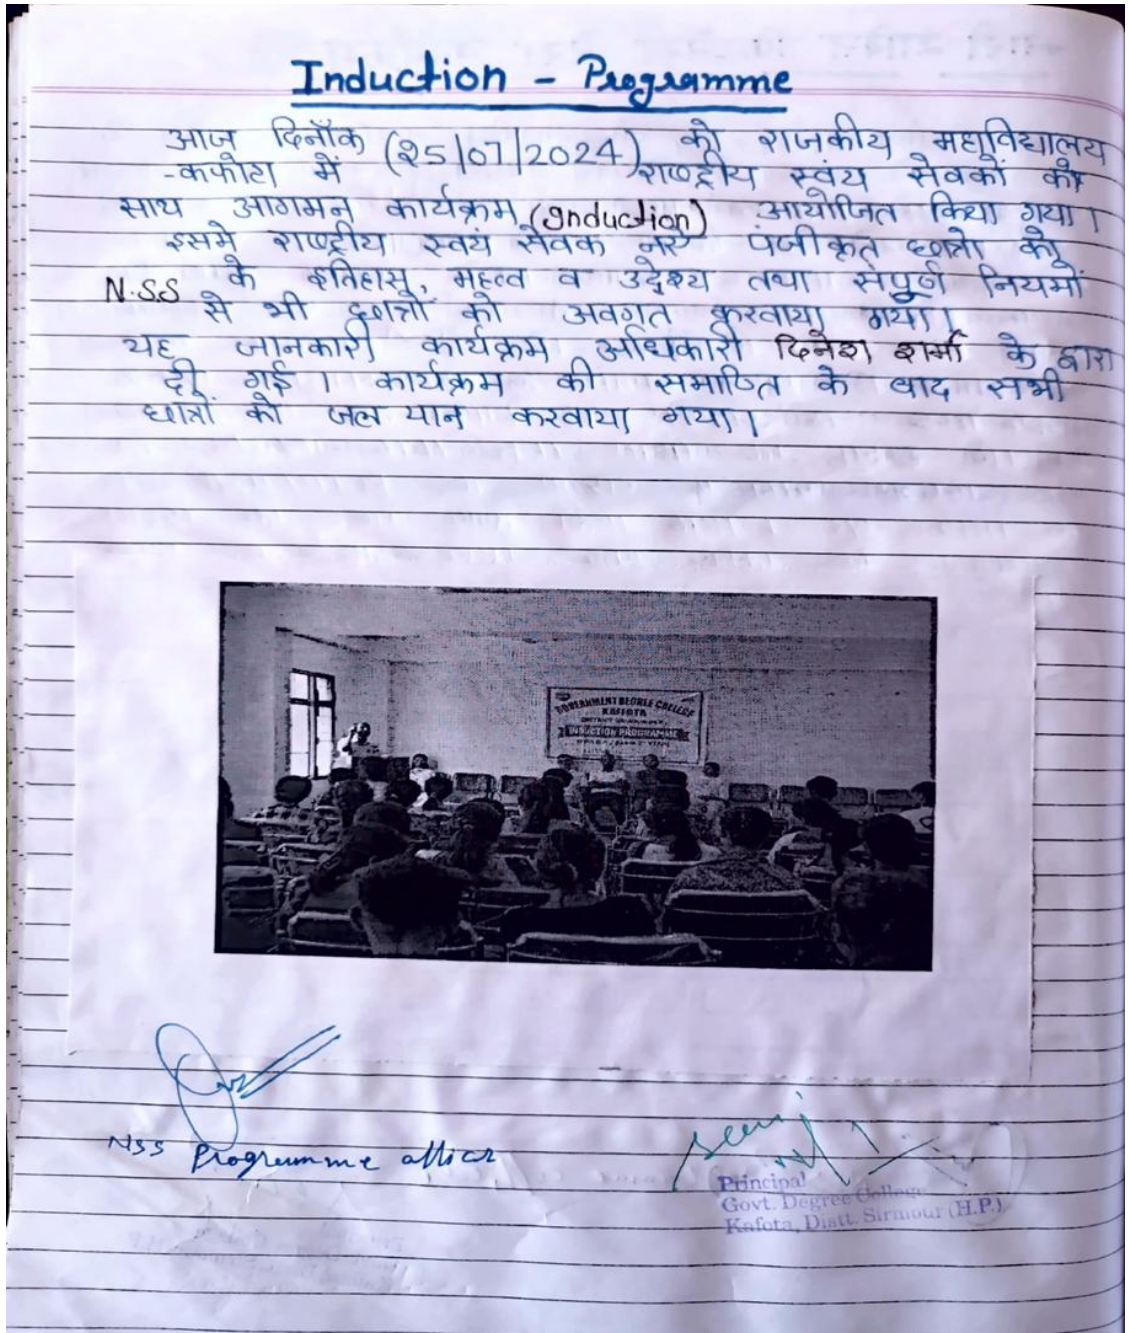 Induction - Programme
आज दिनाँक (25/07/2024) को राजकीय महाविद्यालय
-कफोटा में राष्ट्रीय स्वंय सेवकों के
साथ आगमन कार्यक्रम (Induction) आयोजित किया गया।
इसमे राष्ट्रीय स्वयं सेवक नए पंजीकृत छात्रो को
N.S.S के इतिहास, महत्व व उद्देश्य तथा संपूर्ण नियमों
से भी छात्रों को अवगत करवाया गया।
यह जानकारी कार्यक्रम अधिकारी दिनेश शर्मा के द्वारा
दी गई। कार्यक्रम की समाप्ति के बाद सभी
छात्रों को जल यान करवाया गया।
GOVERNMENT DEGREE COLLEGE
KAFFOTA
INDUCTION PROGRAMME
NSS Programme officer
Principal
Govt. Degree College
Kafota, Distt. Sirmour (H.P.)